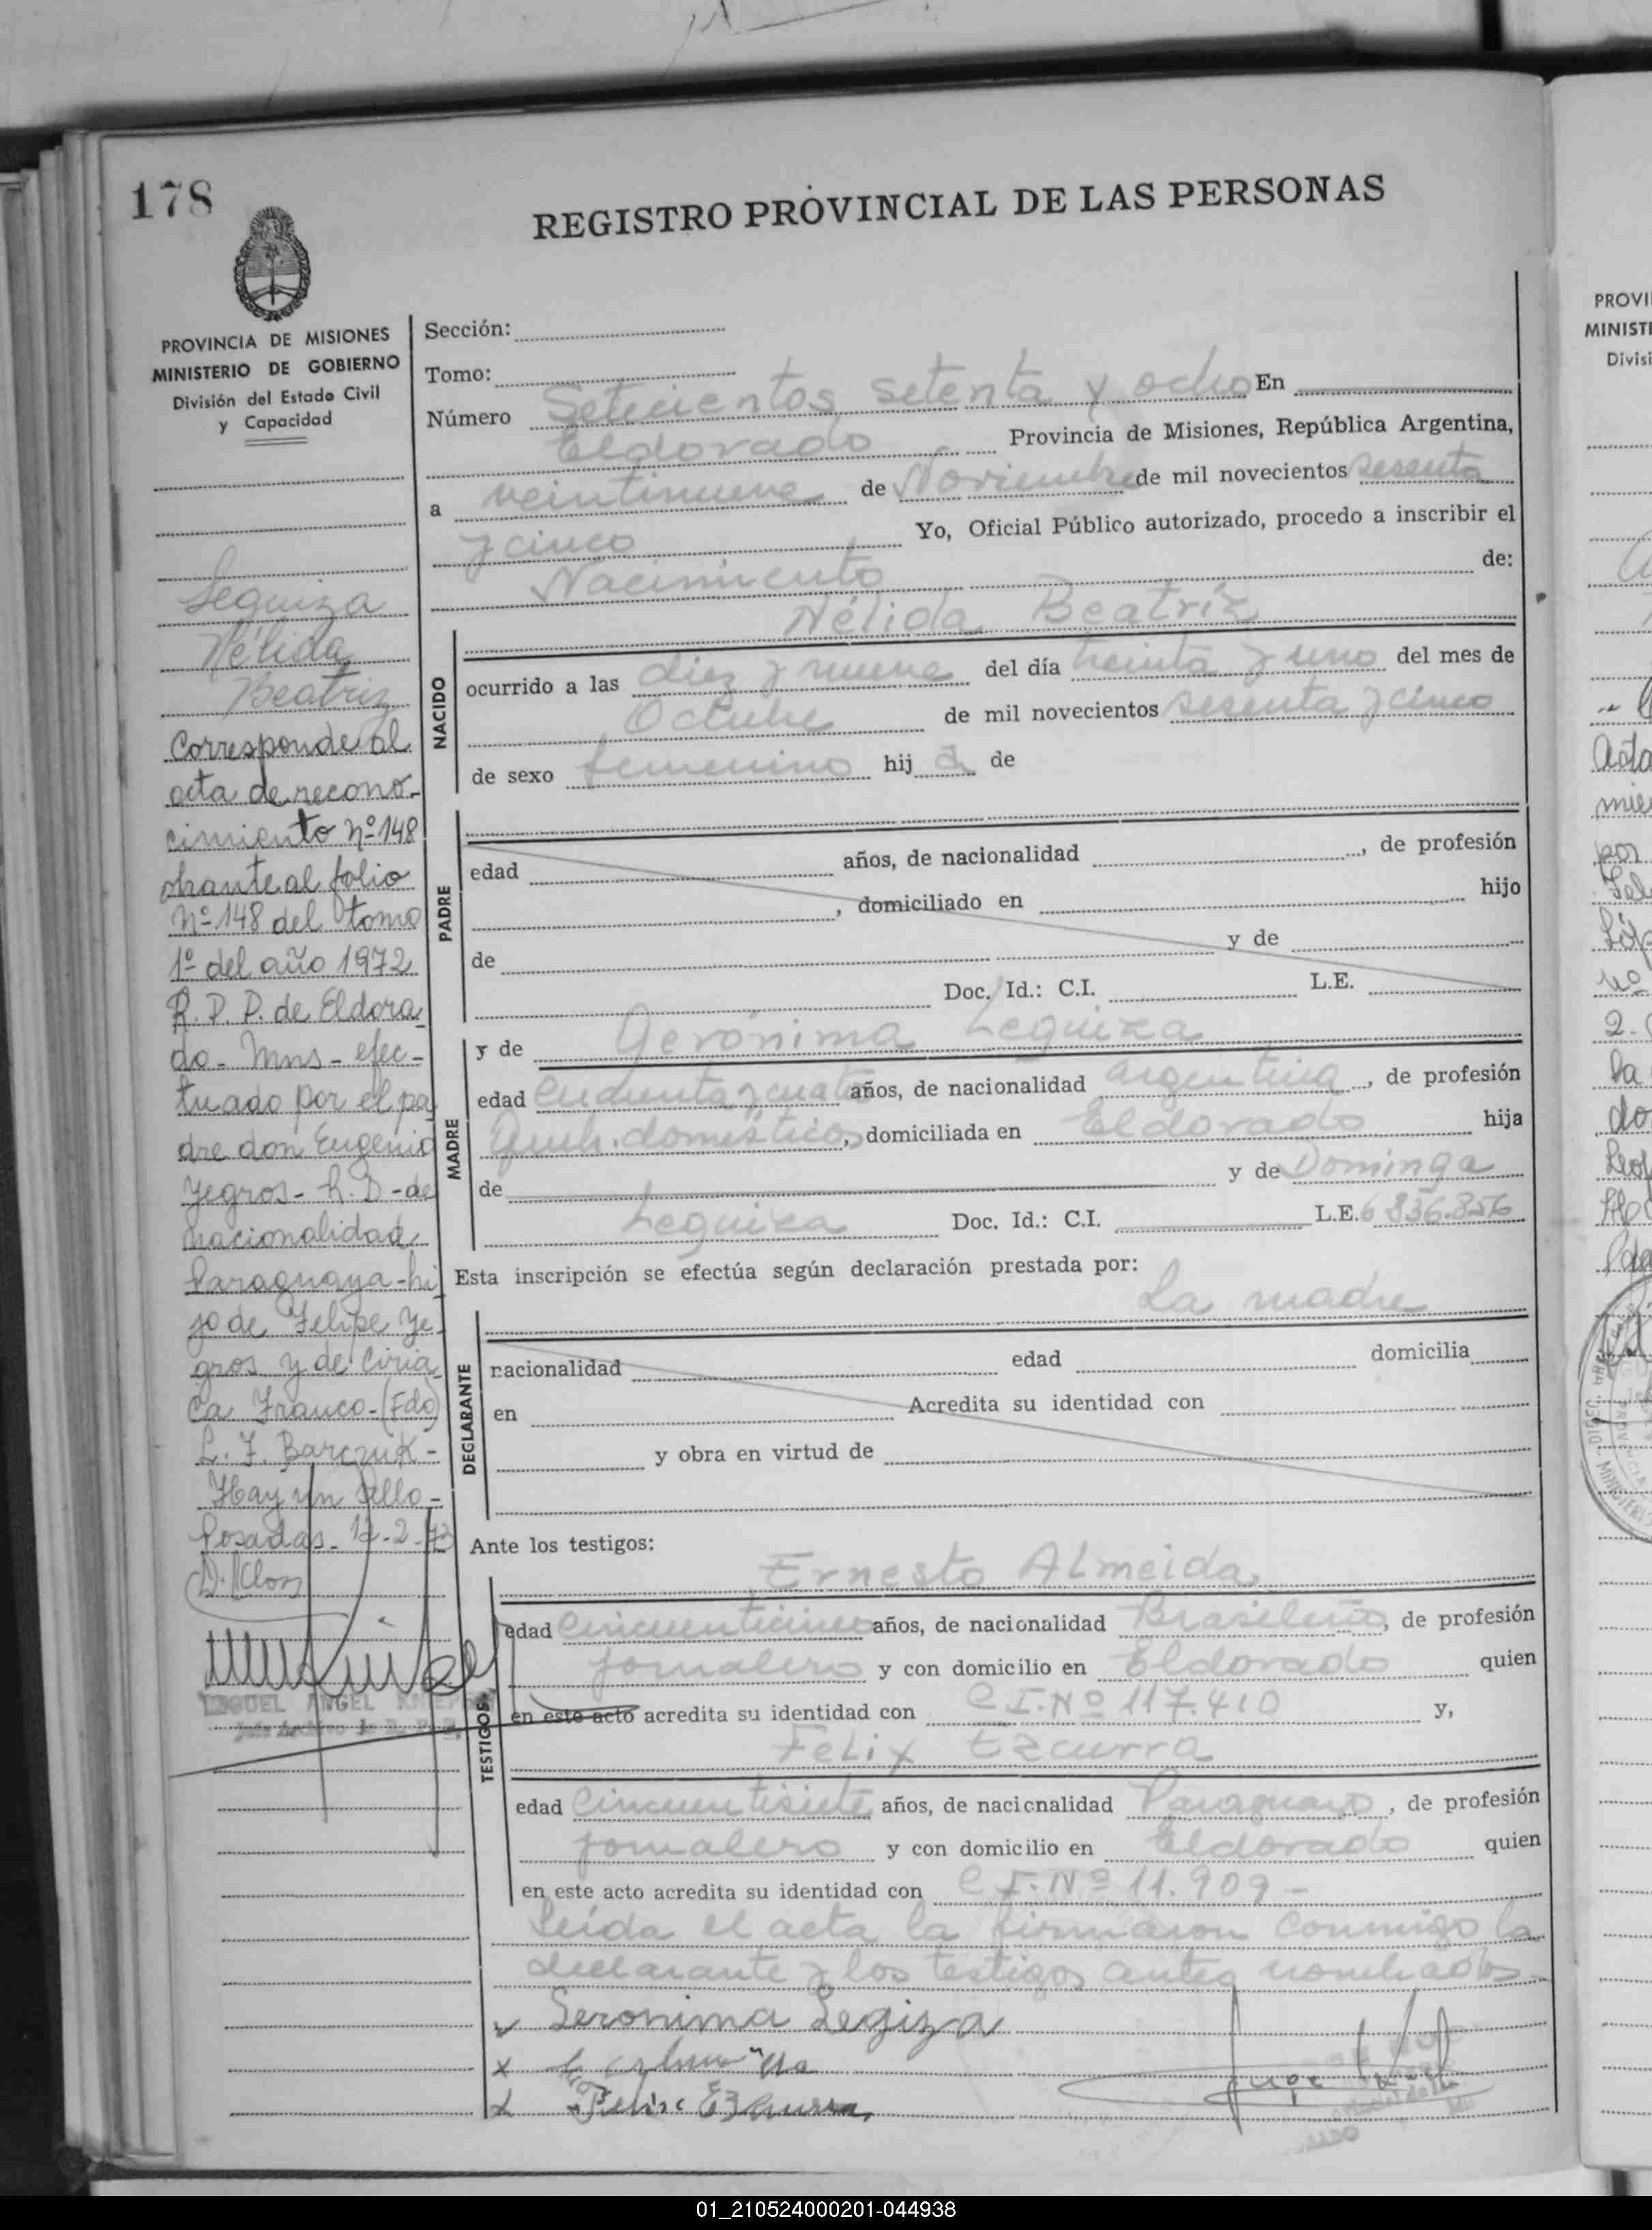 178
REGISTRO PROVINCIAL DE LAS PERSONAS
PROVINCIA DE MISIONES
MINISTERIO DE GOBIERNO
División del Estado Civil
y Capacidad
Leguiza
Nélida
Beatriz
Corresponde al
acta de recono-
cimiento Nº 148
obrante al folio
Nº 148 del tomo
1º del año 1972
R. P. P. de Eldora
do - Mns - efec-
tuado por el pa
dre don Eugenio
Yegros - L. D - de
nacionalidad
Paraguaya - hi
jo de Felipe Ye-
gros y de Ciria
ca Franco - (Fdo)
L. F. Barczuk -
Hay un sello -
Posadas - 12-2-73
MIGUEL ANGEL
Sección:
Tomo:
Número Setecientos setenta y ocho En
Eldorado Provincia de Misiones, República Argentina,
a veintinueve de Noviembre de mil novecientos sesenta
y cinco Yo, Oficial Público autorizado, procedo a inscribir el
Nacimiento de:
Nélida Beatríz
NACIDO
ocurrido a las diez y nueve del día treinta y uno del mes de
Octubre de mil novecientos sesenta y cinco
de sexo femenino hij a de
PADRE
edad años, de nacionalidad , de profesión
, domiciliado en hijo
de y de
Doc. Id.: C.I. L.E.
y de Gerónima Leguiza
MADRE
edad años, de nacionalidad argentina , de profesión
Queh. domésticos, domiciliada en Eldorado hija
de y de Dominga
Leguiza Doc. Id.: C.I. L.E. 6.836.856
Esta inscripción se efectúa según declaración prestada por:
La madre
DECLARANTE
nacionalidad edad domicilia
en Acredita su identidad con
y obra en virtud de
Ante los testigos:
Ernesto Almeida
TESTIGOS
edad Cincuenticinco años, de nacionalidad Brasileño, de profesión
Jornalero y con domicilio en Eldorado quien
en este acto acredita su identidad con C.I. Nº 117.410 y,
Felix Ezcurra
edad Cincuentisiete años, de nacionalidad Paraguayo, de profesión
Jornalero y con domicilio en Eldorado quien
en este acto acredita su identidad con C.I. Nº 11.909 -
Leída el acta la firmaron conmigo la
declarante y los testigos antes nombrados -
Geronima Legiza
Felix Ezcurra
PROVI
MINIST
Divis
01_210524000201-044938